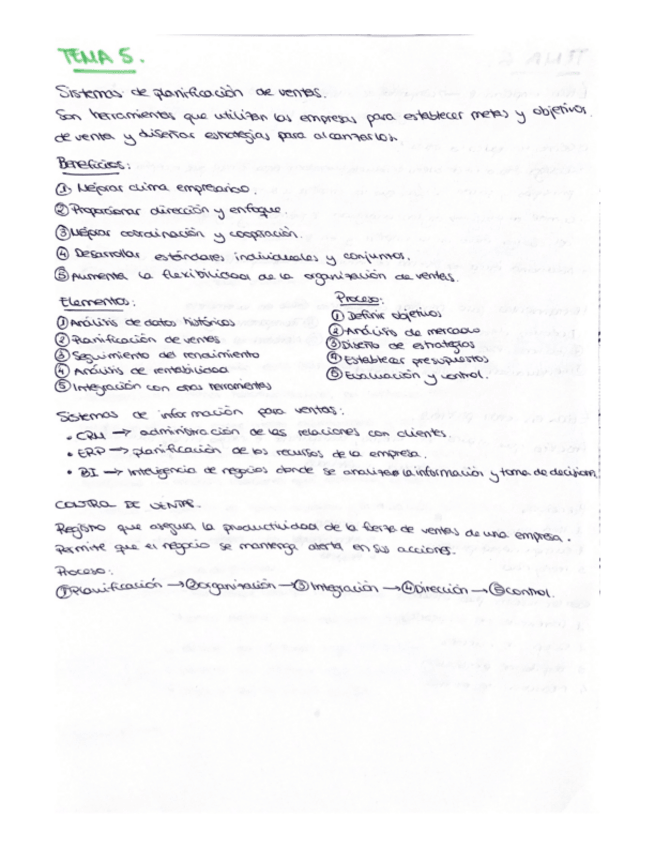 TEMA 5.
Sistemas de planificación de ventas.
Son herramientas que utilizan las empresas para establecer metas y objetivos
de venta y diseñar estrategias para alcanzarlos.
Beneficios:
① Mejorar clima empresarial.
② Proporcionar dirección y enfoque
③ Mejorar coordinación y cooperación.
④ Desarrollar estándares individuales y conjuntos.
⑤ Aumenta la flexibilidad de la organización de ventas.
Elementos:
① Análisis de datos históricos
② Planificación de ventas
③ Seguimiento del rendimiento
④ Análisis de rentabilidad
⑤ Integración con otras herramientas
Proceso:
① Definir objetivos
② Análisis de mercado
③ Diseño de estrategias
④ Establecer presupuestos
⑤ Evaluación y control.
Sistemas de información para ventas:
• CRM → administración de las relaciones con clientes.
• ERP → planificación de los recursos de la empresa.
• BI → Inteligencia de negocios donde se analiza la información y toma de decisiones
CONTROL DE VENTAS.
Registro que asegura la productividad de la fuerza de ventas de una empresa.
Permite que el negocio se mantenga alerta en sus acciones.
Proceso:
① Planificación → ② organización → ③ Integración → ④ Dirección → ⑤ control.